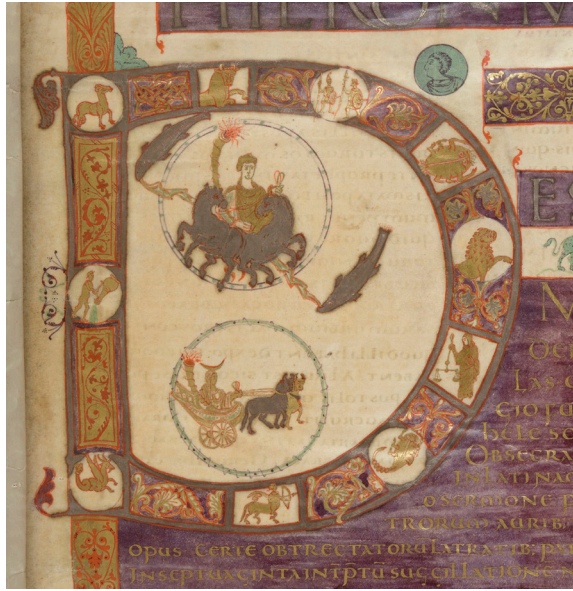 HIERONM
D
ES
M
OC
LAS C
EIO FU
hELE SC
OBSECRA
INLATINA
O SERMONE P
TRORUM AURIB:
OPUS CERTE OBTRECTATORŪ LATRATIB: PA
INSEPTUAGINTA INTP̄TŪ SUGGILLATIONE N